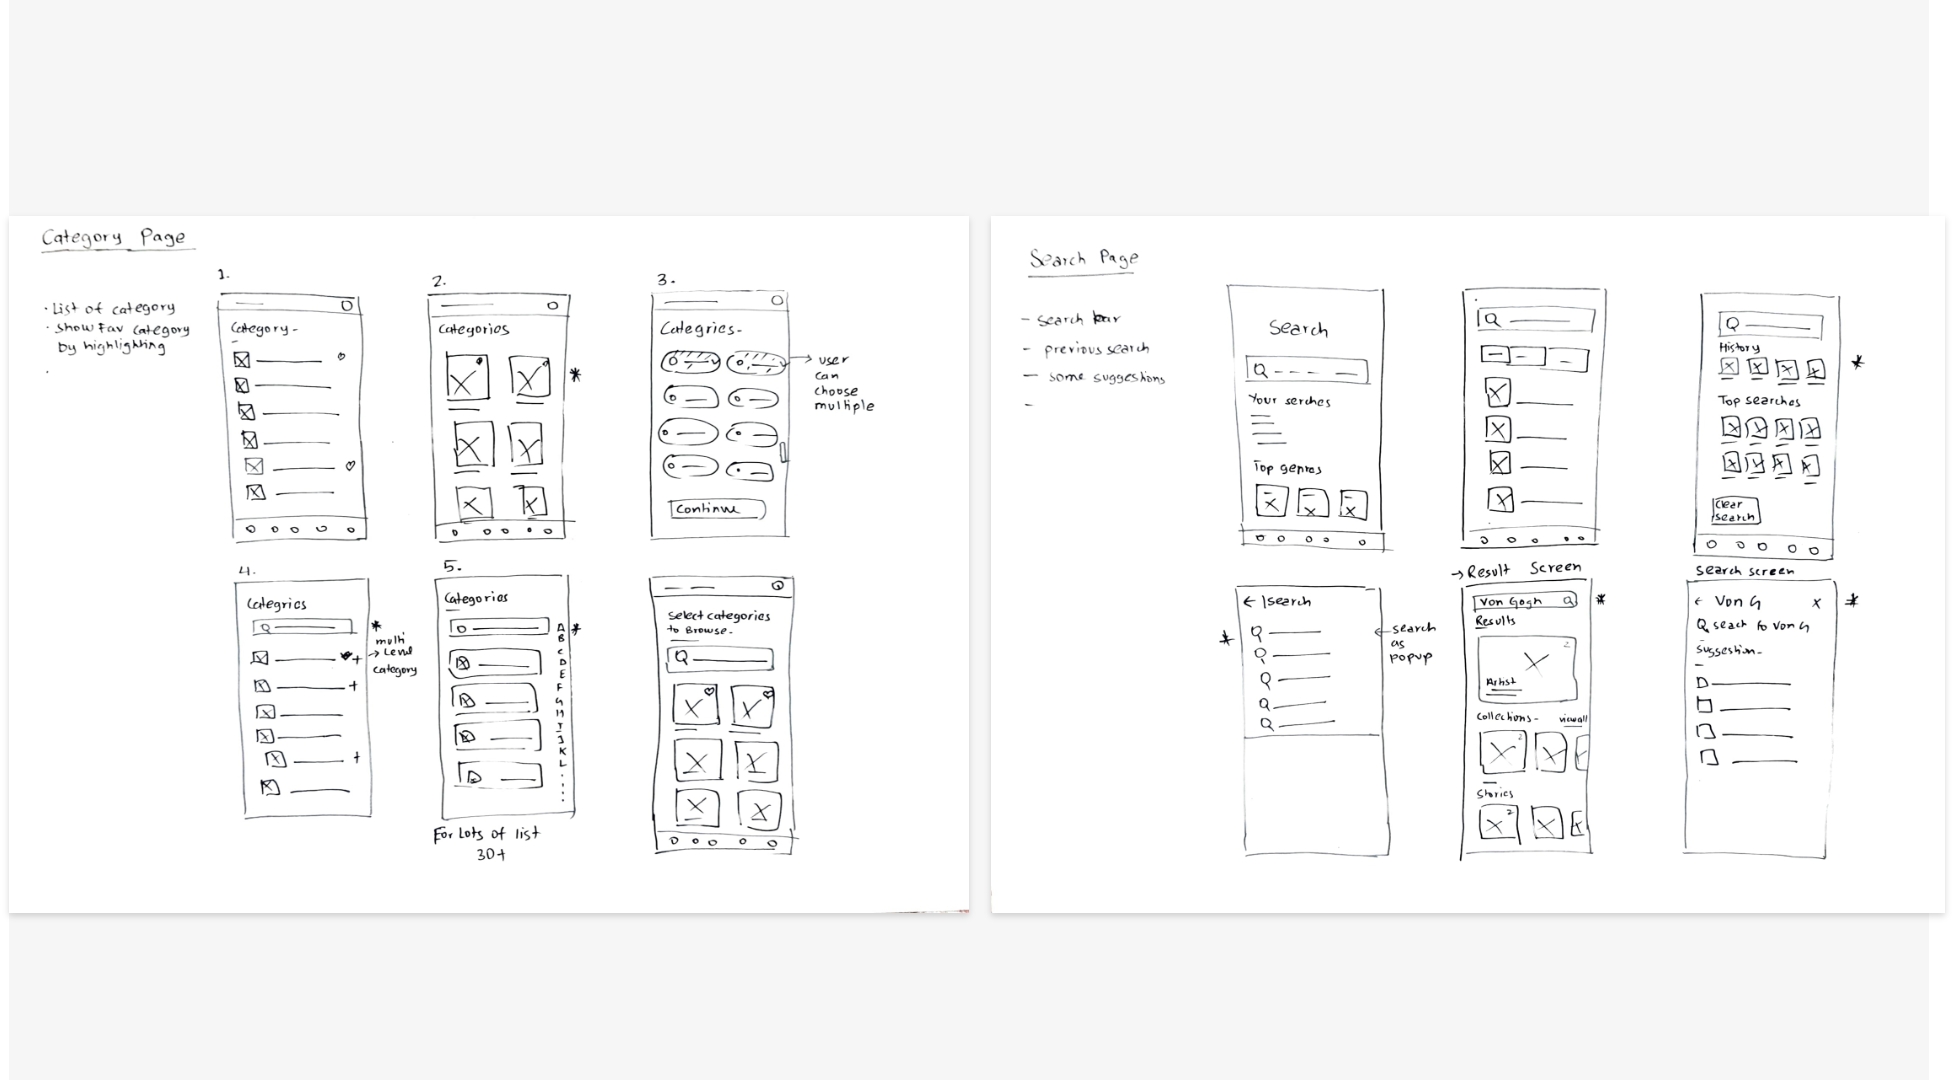 Category Page
· List of category
· Show Fav category
by highlighting
·
1.
Category-
2.
Categories
*
3.
Categries-
Continue
→ user
can
choose
multiple
4.
Categries
*
multi
→ Level
category
5.
Categories
*
A
B
C
D
E
F
G
H
I
J
K
L
For Lots of list
30+
Select categories
to Browse-
Search Page
- search bar
- previous search
- some suggestions
-
Search
Your serches
Top genres
History
*
Top searches
Clear
search
← |search
*
← search
as
popup
→ Result Screen
Von Gogh
*
Results
Artist
Collections- view all
Stories
search screen
← Von G X
*
Q seach fo Von G
suggestion-